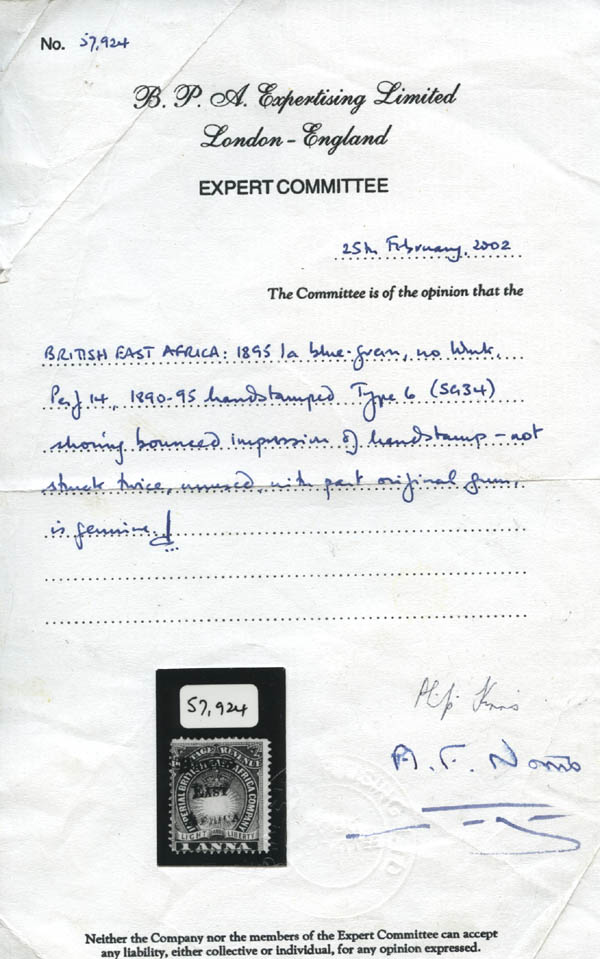 No. 57,924
B. P. A. Expertising Limited
London - England
EXPERT COMMITTEE
25th February, 2002
The Committee is of the opinion that the
BRITISH EAST AFRICA: 1895 1a blue-green, no Wmk,
Perf 14, 1890-95 handstamped Type 6 (SG34)
showing bounced impression of handstamp - not
struck twice, unused, with part original gum,
is genuine.
57,924
POSTAGE REVENUE
BRITISH
EAST
AFRICA
IMPERIAL BRITISH EAST AFRICA COMPANY
LIGHT AND LIBERTY
1 ANNA
A. F. Norris
Neither the Company nor the members of the Expert Committee can accept
any liability, either collective or individual, for any opinion expressed.